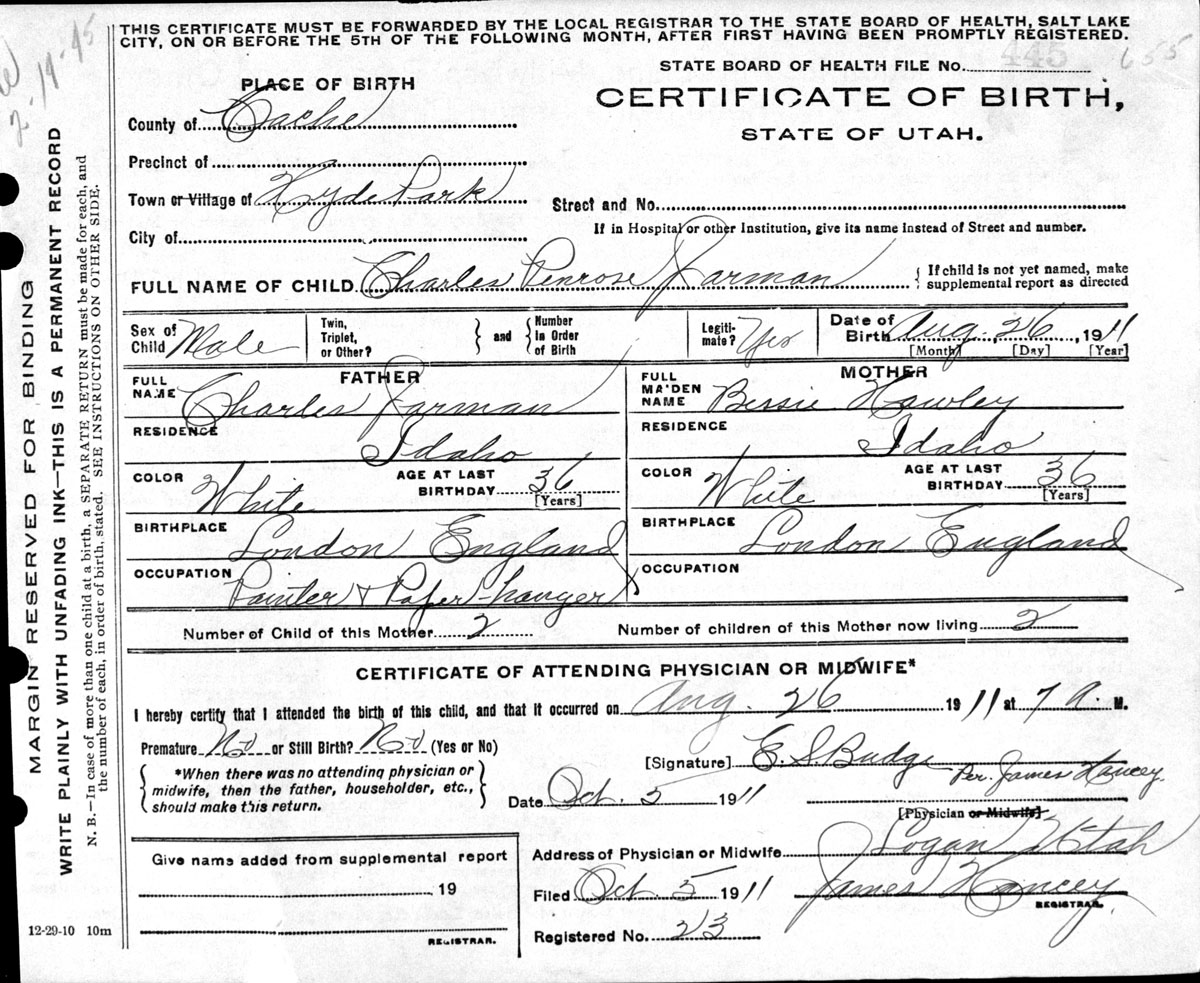 THIS CERTIFICATE MUST BE FORWARDED BY THE LOCAL REGISTRAR TO THE STATE BOARD OF HEALTH, SALT LAKE
CITY, ON OR BEFORE THE 5TH OF THE FOLLOWING MONTH, AFTER FIRST HAVING BEEN PROMPTLY REGISTERED.
STATE BOARD OF HEALTH FILE No. 445 655
PLACE OF BIRTH
CERTIFICATE OF BIRTH,
STATE OF UTAH.
County of Cache
Precinct of
Town or Village of Hyde Park
Street and No.
City of
If in Hospital or other Institution, give its name instead of Street and number.
FULL NAME OF CHILD Charles Penrose Jarman
{ If child is not yet named, make
supplemental report as directed
Sex of Child Male
Twin, Triplet, or Other? } and { Number In Order of Birth
Legiti-mate? Yes
Date of Birth Aug. 26, 1911
[Month] [Day] [Year]
FATHER
FULL NAME Charles Jarman
RESIDENCE Idaho
COLOR White
AGE AT LAST BIRTHDAY 36 [Years]
BIRTHPLACE London England
OCCUPATION Painter & Paper-hanger
MOTHER
FULL MAIDEN NAME Bessie Hawley
RESIDENCE Idaho
COLOR White
AGE AT LAST BIRTHDAY 36 [Years]
BIRTHPLACE London England
OCCUPATION
Number of Child of this Mother 2
Number of children of this Mother now living 2
CERTIFICATE OF ATTENDING PHYSICIAN OR MIDWIFE*
I hereby certify that I attended the birth of this child, and that it occurred on Aug. 26 1911 at 7 a. M.
Premature No or Still Birth? No (Yes or No)
{ *When there was no attending physician or
midwife, then the father, householder, etc.,
should make this return. }
[Signature] E. S. Budge Per. James Hancey
Date Oct. 5 1911
[Physician or Midwife]
Address of Physician or Midwife Logan Utah
Filed Oct. 5 1911 James Hancey
REGISTRAR.
Registered No. 23
Give name added from supplemental report
19
REGISTRAR.
12-29-10 10m
MARGIN RESERVED FOR BINDING
WRITE PLAINLY WITH UNFADING INK—THIS IS A PERMANENT RECORD
N. B.—In case of more than one child at a birth, a SEPARATE RETURN must be made for each, and
the number of each, in order of birth, stated. SEE INSTRUCTIONS ON OTHER SIDE.